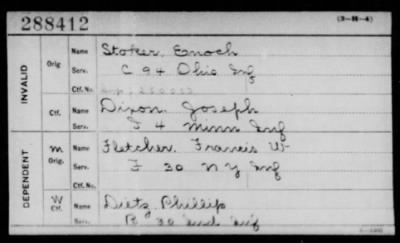 288412
(3-H-4)
INVALID
Orig
Name Stoker, Enoch
Serv. C 94 Ohio Inf
Ctf. No.
Ctf.
Name Dixon Joseph
Serv. F 4 Minn Inf
DEPENDENT
M Orig.
Name Fletcher, Francis W
Serv. F 30 N Y Inf
Ctf. No.
W Ctf.
Name Dietz Phillip
Serv. B 30 Ind Inf